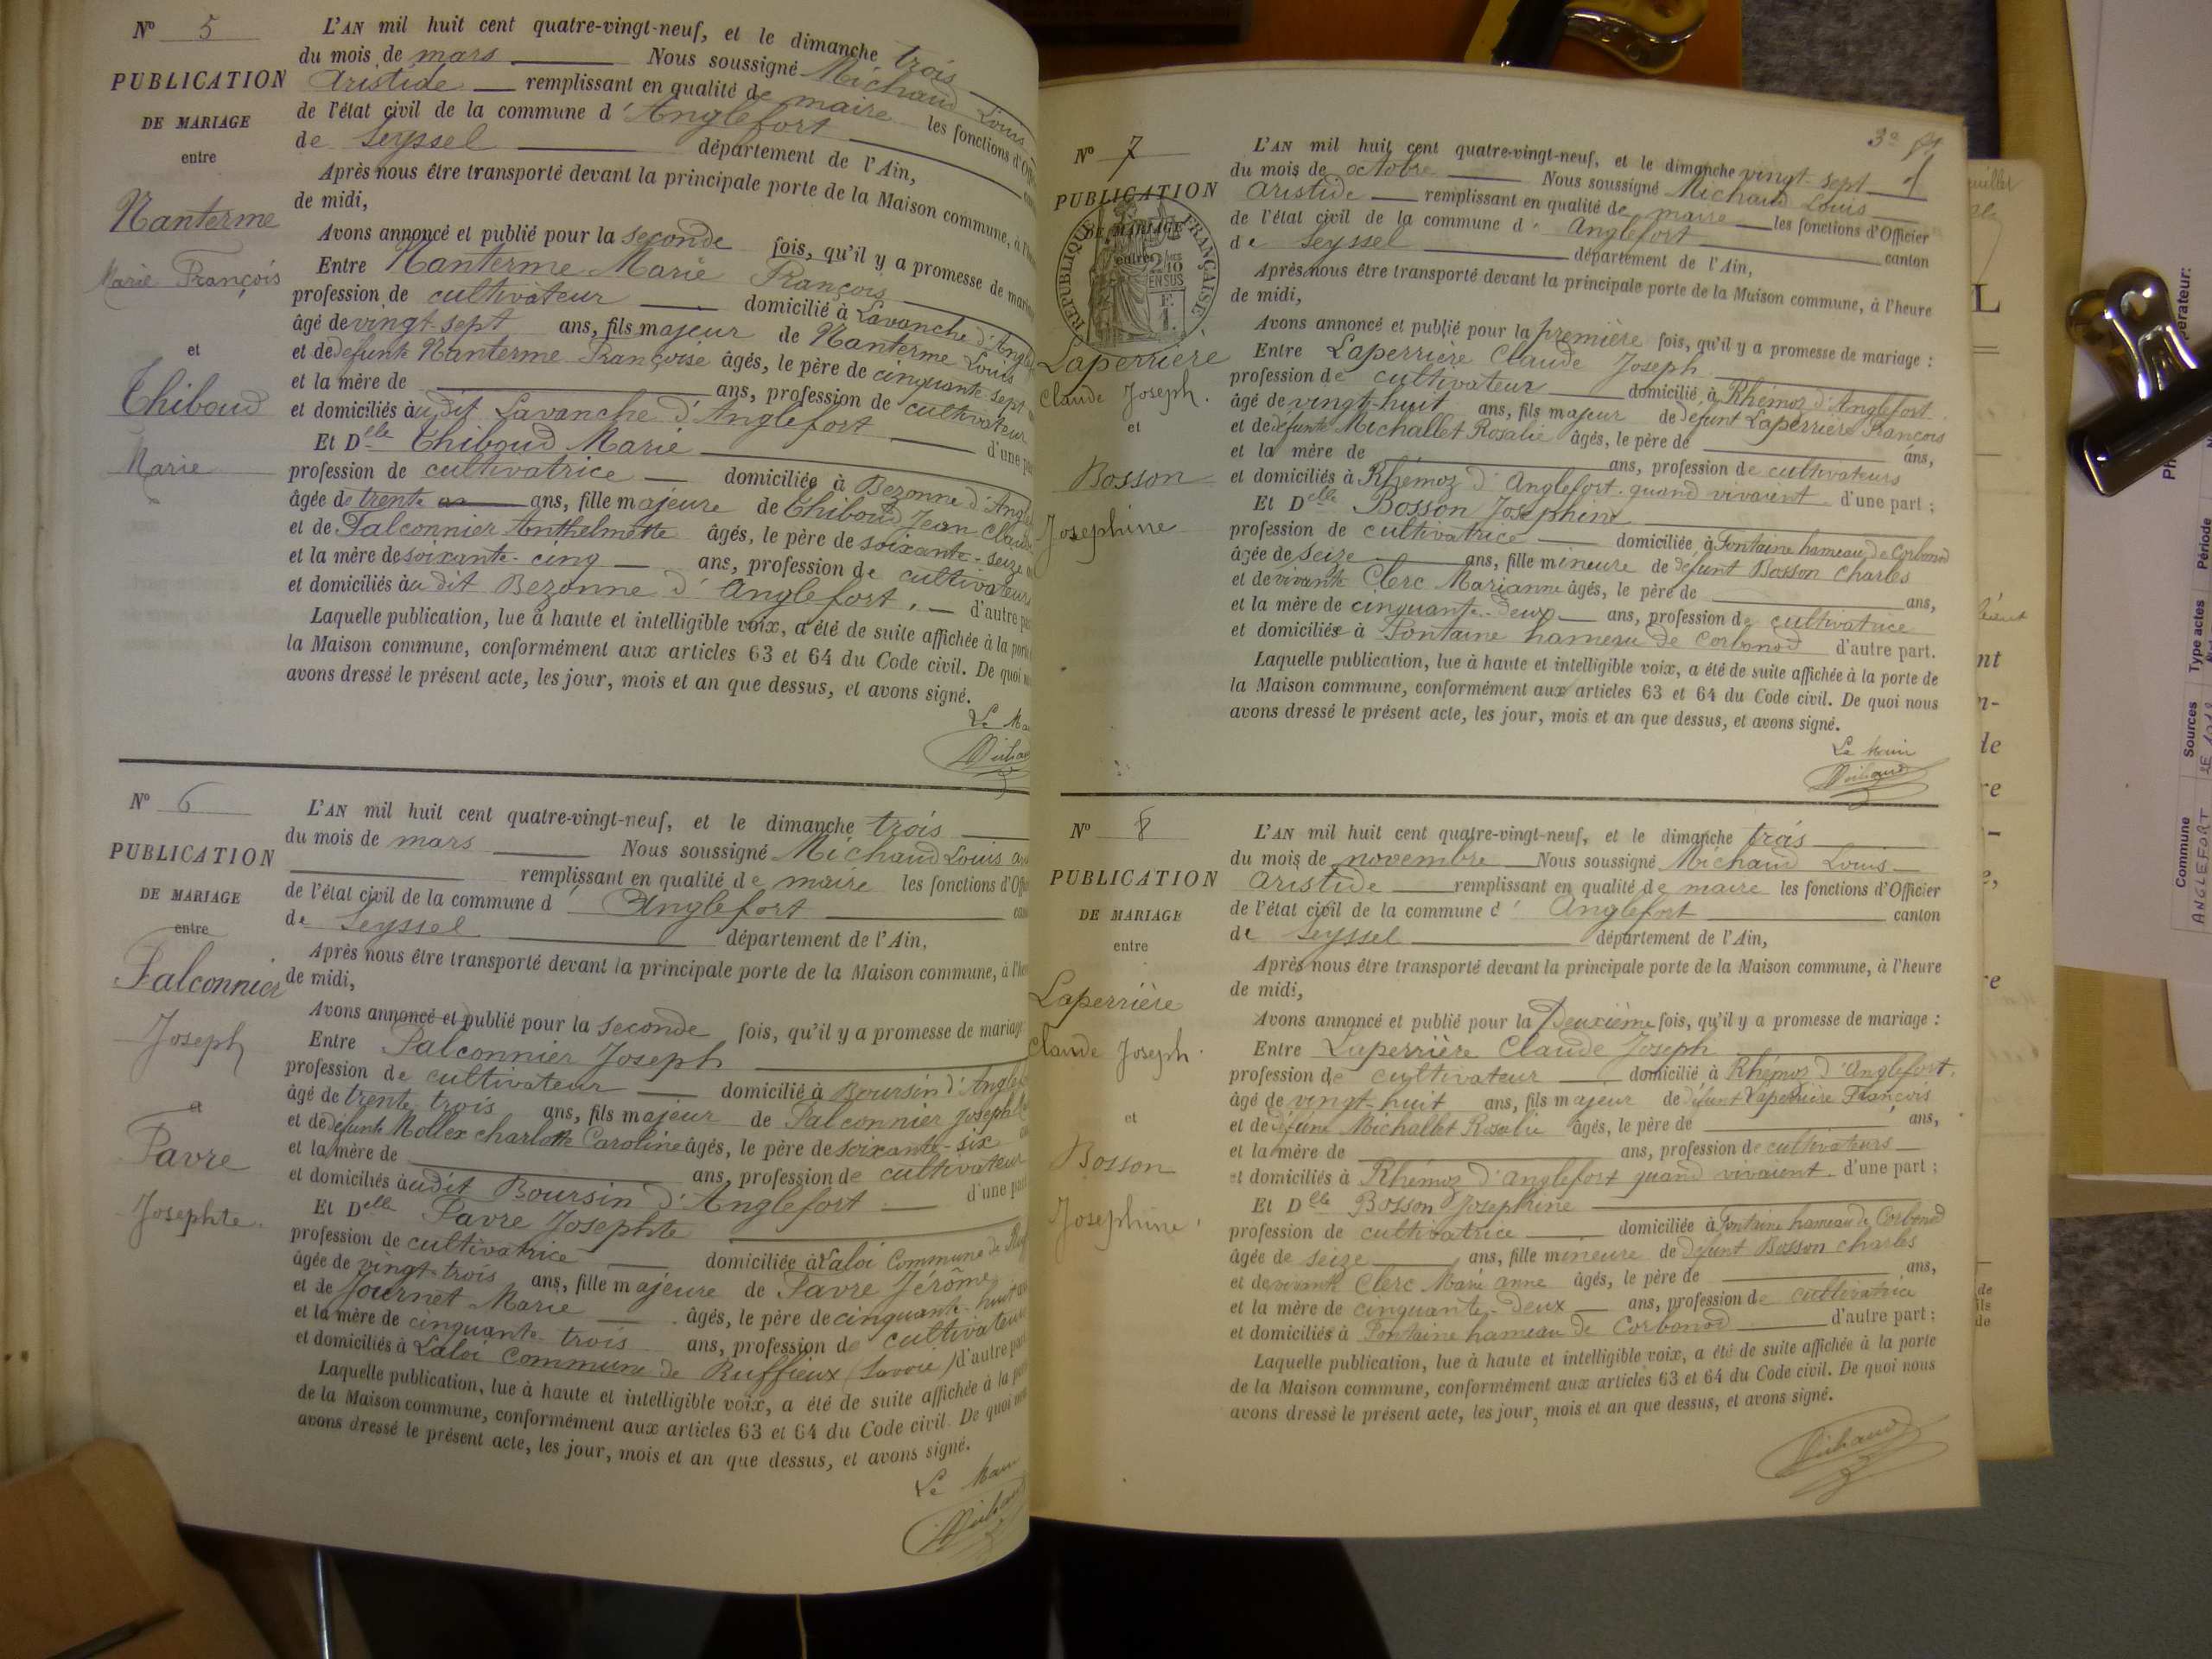 Nº 5
PUBLICATION
DE MARIAGE
entre
Nanterme
Marie François
et
Thiboud
Marie
L'AN mil huit cent quatre-vingt-neuf, et le dimanche trois
du mois de mars Nous soussigné Michaud Louis
Aristide remplissant en qualité de maire les fonctions d'Offi
de l'état civil de la commune d'Anglefort
de Seyssel département de l'Ain,
Après nous être transporté devant la principale porte de la Maison commune, à l'h
de midi,
Avons annoncé et publié pour la seconde fois, qu'il y a promesse de maria
Entre Nanterme Marie François
profession de cultivateur domicilié à Lavanche d'Anglef
âgé de vingt-sept ans, fils majeur de Nanterme Louis
et de défunte Nanterme Françoise âgés, le père de cinquante-sept
et la mère de ans, profession de cultivateur
et domiciliés àu dit Lavanche d'Anglefort d'une pa
Et Delle Thiboud Marie
profession de cultivatrice domiciliée à Bezonne d'Angl
âgée de trente ans, fille majeure de Thiboud Jean Claude
et de Falconnier Anthelmette âgés, le père de soixante-seize
et la mère de soixante-cinq ans, profession de cultivateurs
et domiciliés àu dit Bezonne d'Anglefort. d'autre pa
Laquelle publication, lue à haute et intelligible voix, a été de suite affichée à la porte
la Maison commune, conformément aux articles 63 et 64 du Code civil. De quoi n
avons dressé le présent acte, les jour, mois et an que dessus, et avons signé.
Le Ma
Michau
Nº 6
PUBLICATION
DE MARIAGE
entre
Falconnier
Joseph
et
Favre
Josephte.
L'AN mil huit cent quatre-vingt-neuf, et le dimanche trois
du mois de mars Nous soussigné Michaud Louis a
remplissant en qualité de maire les fonctions d'Offi
de l'état civil de la commune d'Anglefort can
de Seyssel département de l'Ain,
Après nous être transporté devant la principale porte de la Maison commune, à l'heu
de midi,
Avons annoncé et publié pour la seconde fois, qu'il y a promesse de mariage
Entre Falconnier Joseph
profession de cultivateur domicilié à Boursin d'Anglef
âgé de trente trois ans, fils majeur de Falconnier Joseph
et de défunte Mollex charlotte Caroline âgés, le père de soixante-six
et la mère de ans, profession de cultivateur
et domiciliés àudit Boursin d'Anglefort d'une part
Et Delle Favre Josephte
profession de cultivatrice domiciliée à Laloi Commune de Ruf
âgée de vingt-trois ans, fille majeure de Favre Jérôme
et de Journet Marie âgés, le père de cinquante-huit
et la mère de cinquante-trois ans, profession de cultivateurs
et domiciliés à Laloi commune de Ruffieux (Savoie) d'autre part
Laquelle publication, lue à haute et intelligible voix, a été de suite affichée à la por
de la Maison commune, conformément aux articles 63 et 64 du Code civil. De quoi nou
avons dressé le présent acte, les jour, mois et an que dessus, et avons signé.
Le Maire
Michaud
Nº 7
PUBLICATION
DE MARIAGE
entre
RÉPUBLIQUE FRANÇAISE
2/10
EN SUS
Laperrière
Claude Joseph.
et
Bosson
Josephine
L'AN mil huit cent quatre-vingt-neuf, et le dimanche vingt-sept
du mois de octobre Nous soussigné Michaud Louis
Aristide remplissant en qualité de maire les fonctions d'Officier
de l'état civil de la commune d'Anglefort canton
de Seyssel département de l'Ain,
Après nous être transporté devant la principale porte de la Maison commune, à l'heure
de midi,
Avons annoncé et publié pour la première fois, qu'il y a promesse de mariage :
Entre Laperrière Claude Joseph
profession de cultivateur domicilié à Rhémoz d'Anglefort.
âgé de vingt-huit ans, fils majeur de défunt Laperrière François
et de défunte Michallet Rosalie âgés, le père de ans,
et la mère de ans, profession de cultivateurs
et domiciliés à Rhémoz d'Anglefort quand vivaient d'une part ;
Et Delle Bosson Josephine
profession de cultivatrice domiciliée à Fontaine hameau de Corbonod
âgée de seize ans, fille mineure de défunt Bosson Charles
et de vivante Clerc Marianne âgés, le père de ans,
et la mère de cinquante-deux ans, profession de cultivatrice
et domiciliés à Fontaine hameau de Corbonod d'autre part.
Laquelle publication, lue à haute et intelligible voix, a été de suite affichée à la porte de
la Maison commune, conformément aux articles 63 et 64 du Code civil. De quoi nous
avons dressé le présent acte, les jour, mois et an que dessus, et avons signé.
Le Maire
Michaud
Nº 8
PUBLICATION
DE MARIAGE
entre
Laperrière
Claude Joseph.
et
Bosson
Josephine.
L'AN mil huit cent quatre-vingt-neuf, et le dimanche trois
du mois de novembre Nous soussigné Michaud Louis
Aristide remplissant en qualité de maire les fonctions d'Officier
de l'état civil de la commune d'Anglefort canton
de Seyssel département de l'Ain,
Après nous être transporté devant la principale porte de la Maison commune, à l'heure
de midi,
Avons annoncé et publié pour la Deuxième fois, qu'il y a promesse de mariage :
Entre Laperrière Claude Joseph
profession de cultivateur domicilié à Rhémoz d'Anglefort.
âgé de vingt-huit ans, fils majeur de défunt Laperrière François
et de défune Michallet Rosalie âgés, le père de ans,
et la mère de ans, profession de cultivateurs
et domiciliés à Rhémoz d'Anglefort quand vivaient d'une part ;
Et Delle Bosson Josephine
profession de cultivatrice domiciliée à Fontaine hameau de Corbonod
âgée de seize ans, fille mineure de défunt Bosson Charles
et de vivante Clerc Marie anne âgés, le père de ans,
et la mère de cinquante-deux ans, profession de cultivatrice
et domiciliés à Fontaine hameau de Corbonod d'autre part ;
Laquelle publication, lue à haute et intelligible voix, a été de suite affichée à la porte
de la Maison commune, conformément aux articles 63 et 64 du Code civil. De quoi nous
avons dressé le présent acte, les jour, mois et an que dessus, et avons signé.
Michaud
Commune Sources Type actes Période
ANGLEFORT